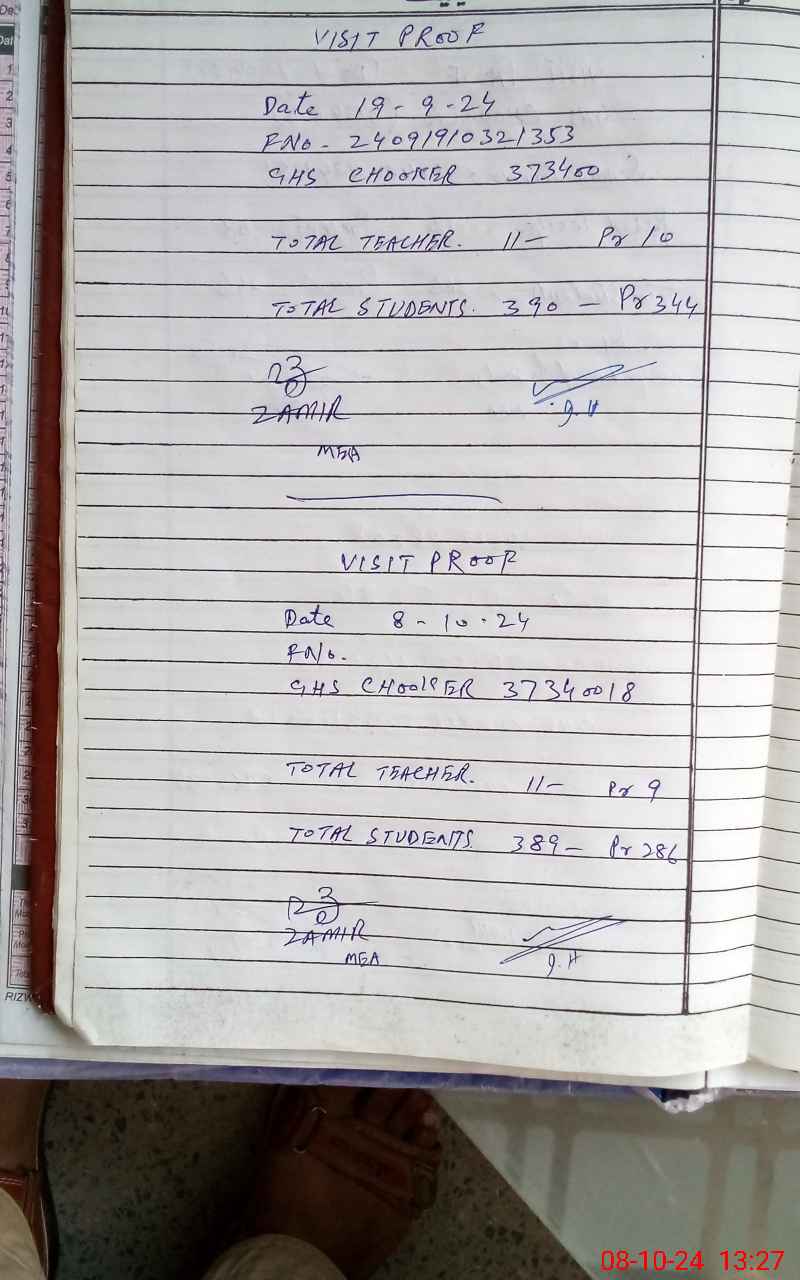 VISIT PROOF
Date 19-9-24
FNo- 24091910321353
GHS CHOOKER 373400
TOTAL TEACHER. 11- Pr 10
TOTAL STUDENTS. 390 - Pr 344
ZAMIR
MEA
VISIT PROOF
Date 8-10-24
FNo.
GHS CHOOKER 37340018
TOTAL TEACHER. 11- Pr 9
TOTAL STUDENTS. 389- Pr 286
ZAMIR
MEA
RIZW
08-10-24 13:27